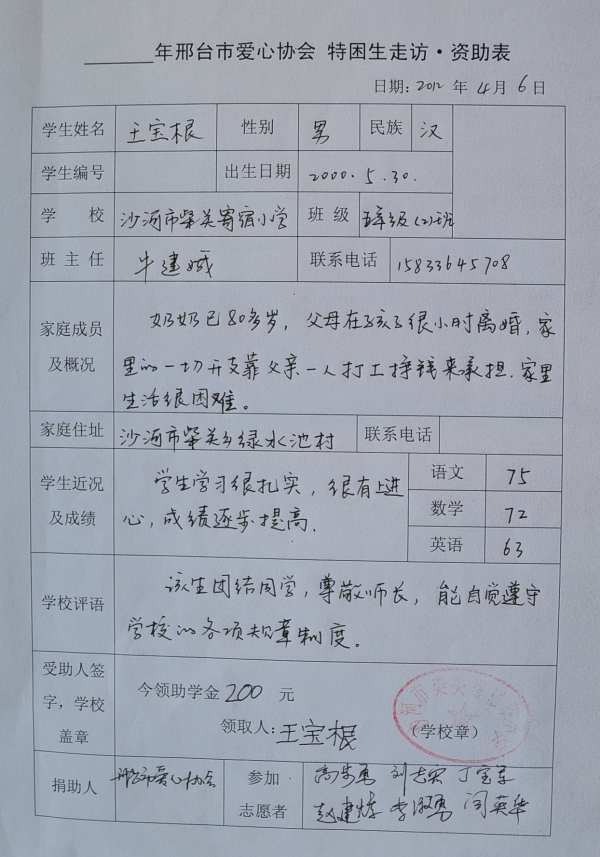 年邢台市爱心协会 特困生走访·资助表
日期: 2012 年 4 月 6 日
学生姓名 王宝根 性别 男 民族 汉
学生编号 出生日期 2000.5.30.
学 校 沙河市柴关寄宿小学 班 级 五年级(2)班
班 主 任 牛建娥 联系电话 15833645708
家庭成员及概况
奶奶已80多岁，父母在孩子很小时离婚，家
里的一切开支靠父亲一人打工挣钱来承担.家里
生活很困难。
家庭住址 沙河市柴关乡绿水池村 联系电话
学生近况及成绩
学生学习很扎实，很有上进
心，成绩逐步提高.
语文 75
数学 72
英语 63
学校评语
该生团结同学，尊敬师长，能自觉遵守
学校的各项规章制度。
受助人签
字，学校
盖章
今领助学金 200 元
领取人: 王宝根 (学校章)
捐助人 邢台市爱心协会
参加
志愿者
刘志宏
赵建焊 李淑勇 闫英华